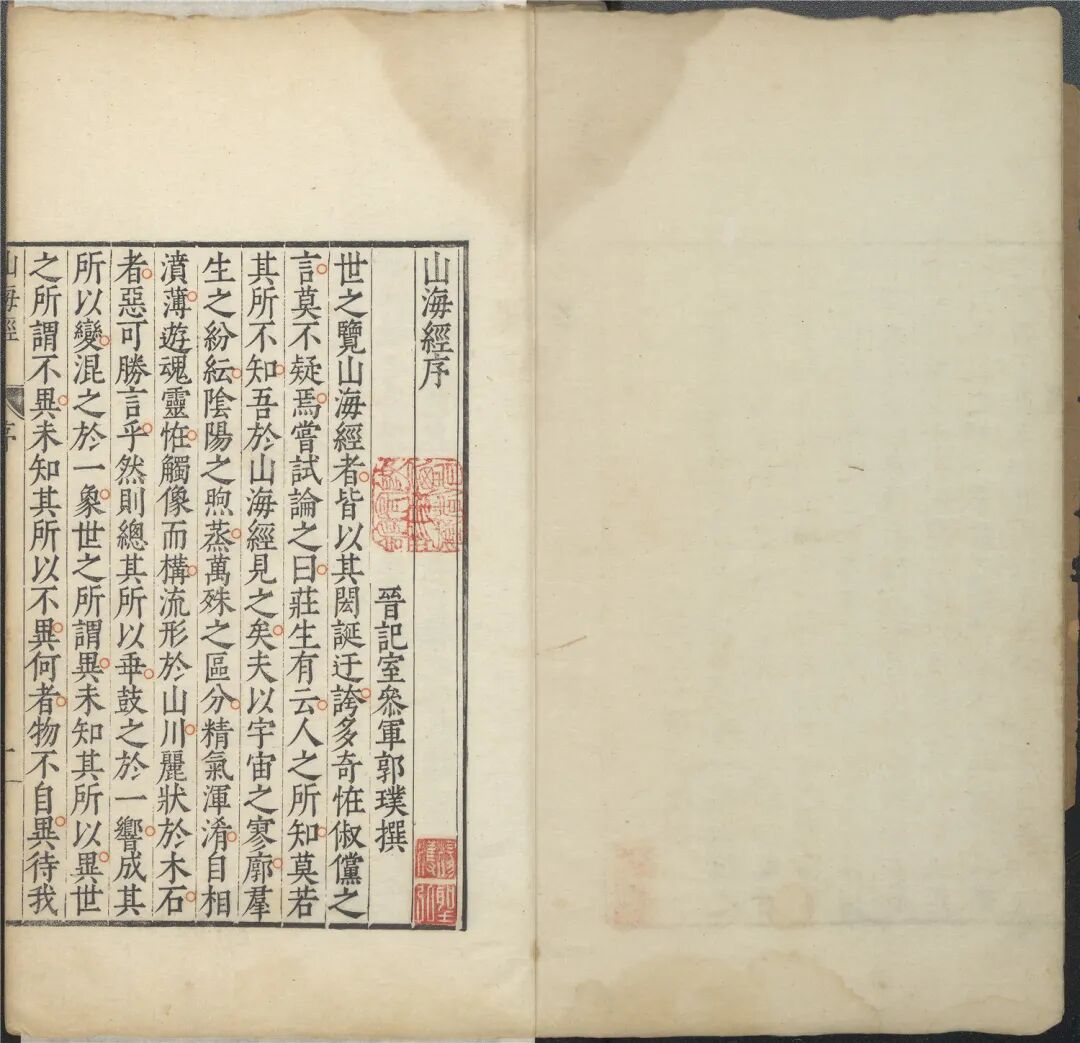 山海經序
晉記室叅軍郭璞撰
世之覽山海經者皆以其閎誕迂誇多奇恠俶儻之
言莫不疑焉嘗試論之曰莊生有云人之所知莫若
其所不知吾於山海經見之矣夫以宇宙之寥廓羣
生之紛紜陰陽之煦蒸萬殊之區分精氣渾淆自相
濆薄遊魂靈恠觸像而構流形於山川麗狀於木石
者惡可勝言乎然則總其所以乖鼓之於一響成其
所以變混之於一象世之所謂異未知其所以異世
之所謂不異未知其所以不異何者物不自異待我
山海經 序 一